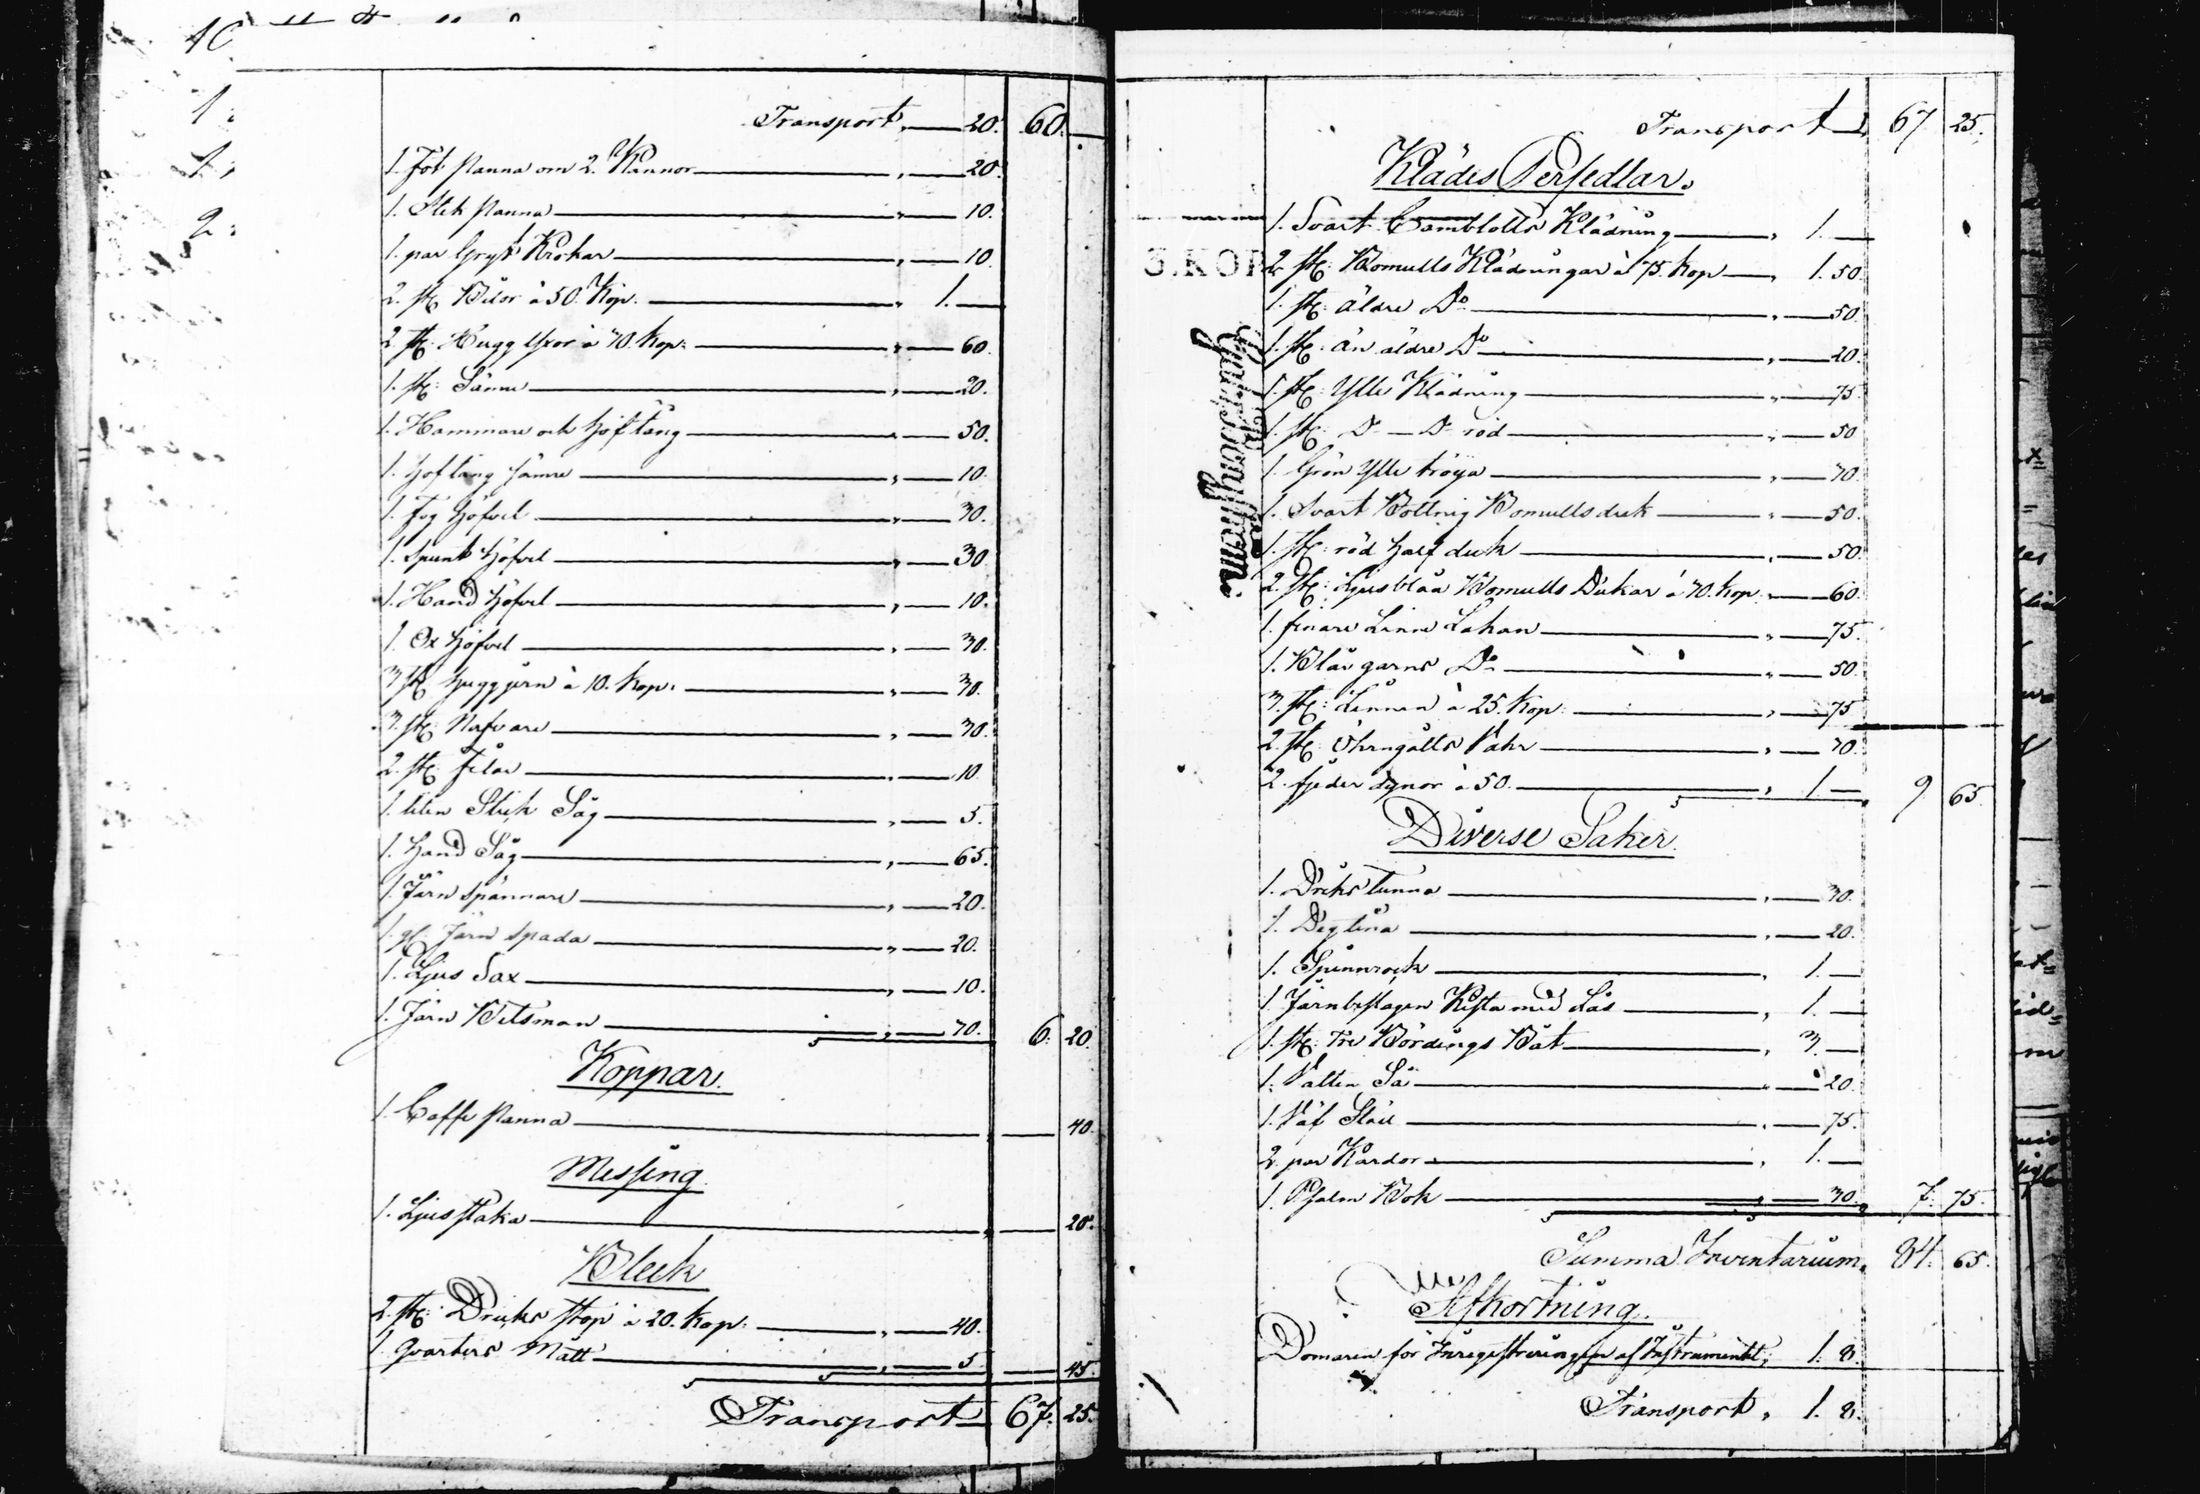 Transport, — 20. 60. —
1. Fot Panna om 2. Kannor — „ — 20.
1. Stek Panna — „ — 10.
1. par Gryt Krokar — „ — 10.
2. st: Bilor à 50. Kop. — „ 1. —
2 st: Hugg Yxor à 30. Kop. — „ — 60.
1. st: Sämre — „ — 20.
1. Hammare och Hoftång — „ — 50.
1. Hoftång sämre — „ — 10.
1. Fog Höfvel — „ — 30.
1. Spunt Höfvel — „ — 30
1. Hand Höfvel — „ — 10.
1. Ox Höfvel — „ — 30.
3 st Huggjern à 10. Kop. — „ — 30.
3. st: Nafvare — „ — 30.
2. st: Filar — „ — 10.
1. liten Stick Såg — „ — 5.
1. Hand Såg — „ — 65.
1. Järn spännare — „ — 20.
1. gl: Järn spada — „ — 20.
1. Ljus Sax — „ — 10.
1. Järn Betsman — „ — 70. 6. 20.
Koppar.
1. Caffe Panna — „ — 40.
Messing.
1. Ljusstaka — „ — 20.
Bleck
2. st: Dricks stop à 20. Kop: — „ — 40.
1 Qvarters Mått — „ — 5 — 45.
Transport 67. 25.
Transport 67 25.
Klädes Persedlar.
1. Svart Camblotts Klädning — „ 1. —
3. KOP
2 st: Bomulls Klädningar à 75. Kop — „ 1. 50.
1. st: äldre Do — „ — 50.
1. st: än äldre Do — „ — 20.
1. st: Ylle Klädning — „ — 75.
1. st: Do — Do röd — „ — 50
1. Grön Ylle tröya — „ — 70.
1. Svart Bottnig Bomullsduk — „ — 50.
1. st: röd Halsduk — „ — 50.
2. st: Ljusblåa Bomulls Dukar à 30. Kop. „ — 60.
1. finare Linne Lakan — „ — 75.
1. Blågarns Do — „ — 50.
3. st: Linnen à 25. Kop. — „ — 75
2. st: Öhrngåtts Vahr — „ — 70.
2. fjeder dynor à 50. — „ 1. — 9 65.
Diverse Saker.
1. Dricks tunna — „ — 30.
1. Degtina — „ — 20.
1. Spinnrock — „ 1. —
1. Järnbeslagen Kista med Lås — „ 1. —
1. st: Tre Bördings Båt — „ 3. —
1. Vatten Så — „ — 20.
1. Väf Stol — „ — 75.
2. par Kardor — „ 1. —
1. Psalm Bok — „ — 30. 7. 75.
Summa Inventarium, 84. 65.
Afkortning.
Domaren för Inregistreringen af Instrumentet, 1. 8.
Transport, 1. 8.